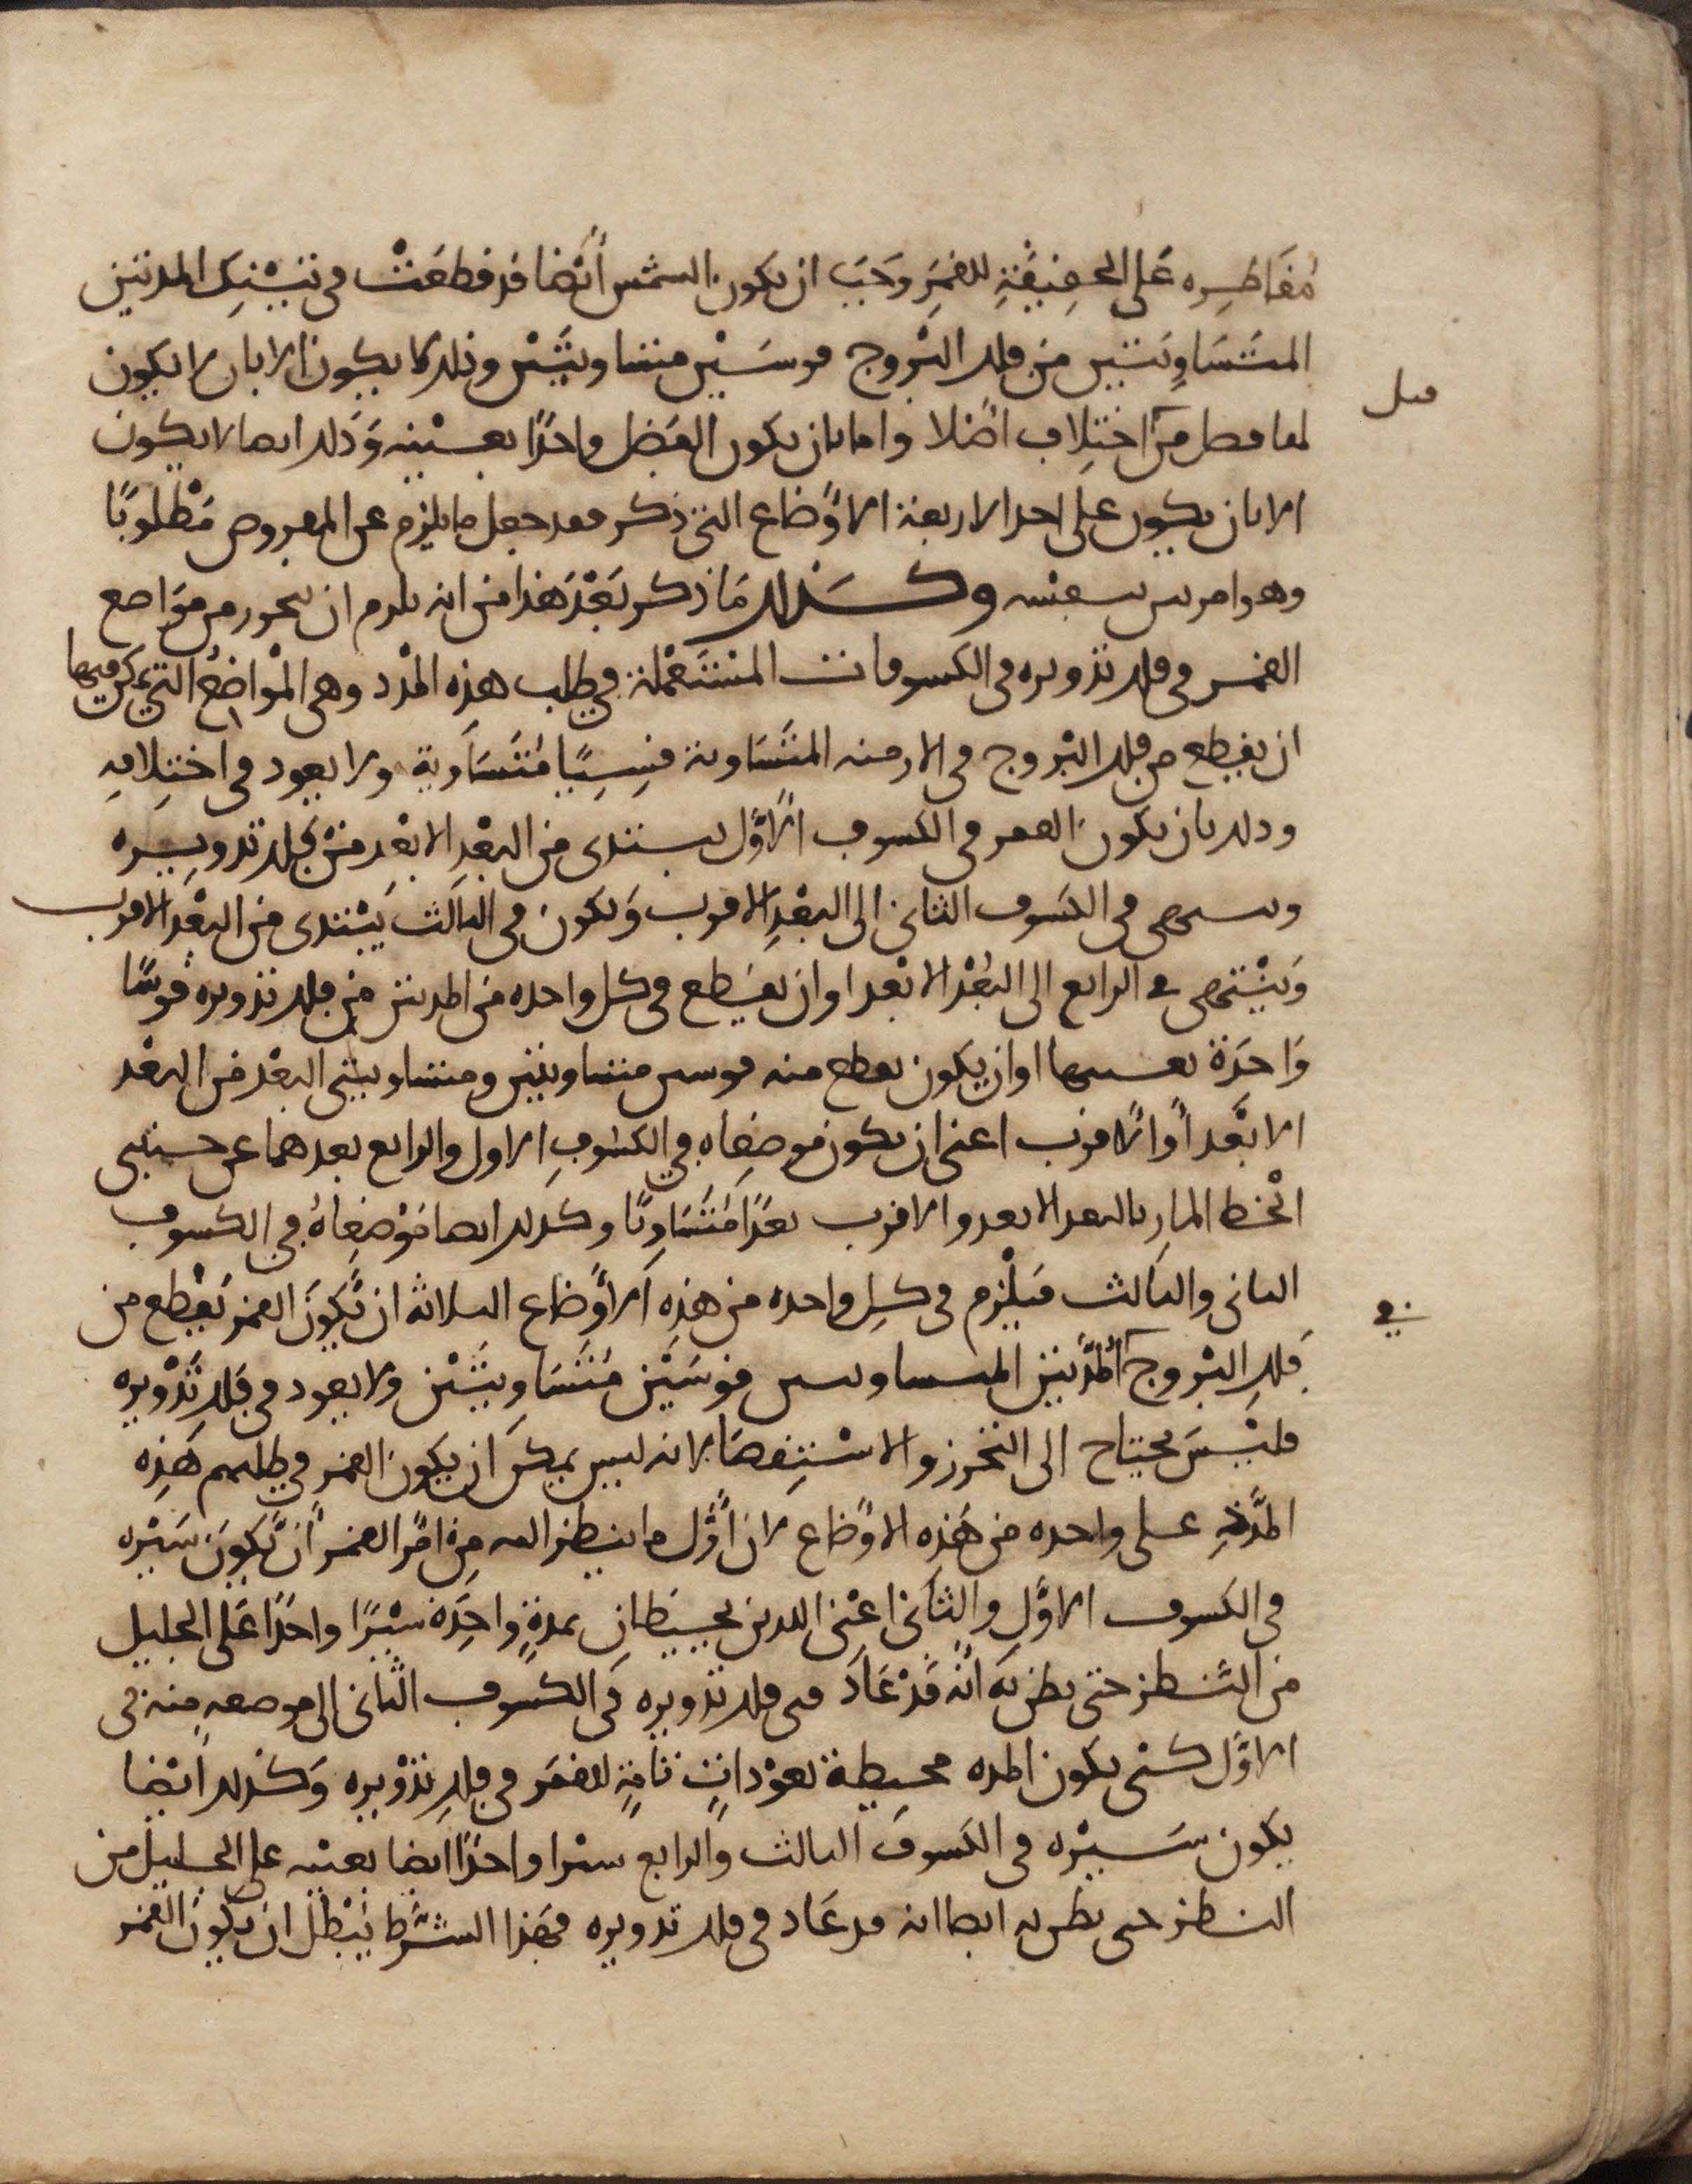 مقاطره على الحقيقة للقمر وجب ان يكون الشمس أيضا قد قطعت في تينك المدتين
المتساويتين من فلك البروج قوسين متساويتين وذلك لا يكون الا بان لا يكون
قبل
لها فضل من اختلاف اصلا واما بان يكون الفضل واحدا بعينه وذلك ايضا لا يكون
الا بان يكون على احد الاربعة الاوضاع التي ذكر فقد جعل ما يلزم عن المفروض مطلوبا
وهو امر بين بنفسه وكذلك ما ذكر بعد هذا من انه يلزم ان نتحرز من مواضع
القمر في فلك تدويره في الكسوفات المستعملة في طلب هذه المدد وهي المواضع التي يمكن فيها
ان يقطع من فلك البروج في الازمنه المتساوية قسيا متساوية ولا يعود في اختلافه
وذلك بان يكون القمر في الكسوف الاول يبتدى من البعد الابعد من فلك تدويره
وينتهي في الكسوف الثاني الى البعد الاقرب ويكون في الثالث يبتدى من البعد الاقرب
وينتهي في الرابع الى البعد الابعد او ان يقطع في كل واحده من المدتين من فلك تدويره قوسا
واحدة بعينها او ان يكون يقطع منه قوسين متساويتين ومتساويتي البعد من البعد
الابعد أو الاقرب اعني ان يكون موضعاه في الكسوف الاول والرابع بعدهما عن جنبتي
الخط المار بالبعد الابعد والاقرب بعدا متساويا وكذلك ايضا موضعاه في الكسوف
الثاني والثالث فيلزم في كل واحده من هذه الاوضاع الثلاثه ان يكون القمر يقطع من
في
فلك البروج المدتين المتساويتين قوسين متساويتين ولا يعود في فلك تدويره
فليس محتاج الى التحرز والاستقصا لانه ليس يمكن ان يكون القمر في طلبهم هذه
المدة على واحده من هذه الاوضاع لان أول ما ينظر اليه من امر القمر أن يكون سيره
في الكسوف الاول والثاني اعني اللذين يحيطان بمدة واحدة سيرا واحدا على الجليل
من النظر حتى يظن به انه قد عاد في فلك تدويره في الكسوف الثاني الى موضعه منه في
الاول كي يكون المده محيطة بعودات تامة للقمر في فلك تدويره وكذلك ايضا
يكون سيره في الكسوف الثالث والرابع سيرا واحدا ايضا بعينه على الجليل من
النظر حتى يظن به ايضا انه قد عاد في فلك تدويره فهذا الشرط يبطل ان يكون القمر